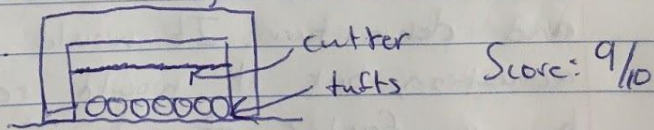 cutter
tufts
Score: 9/10